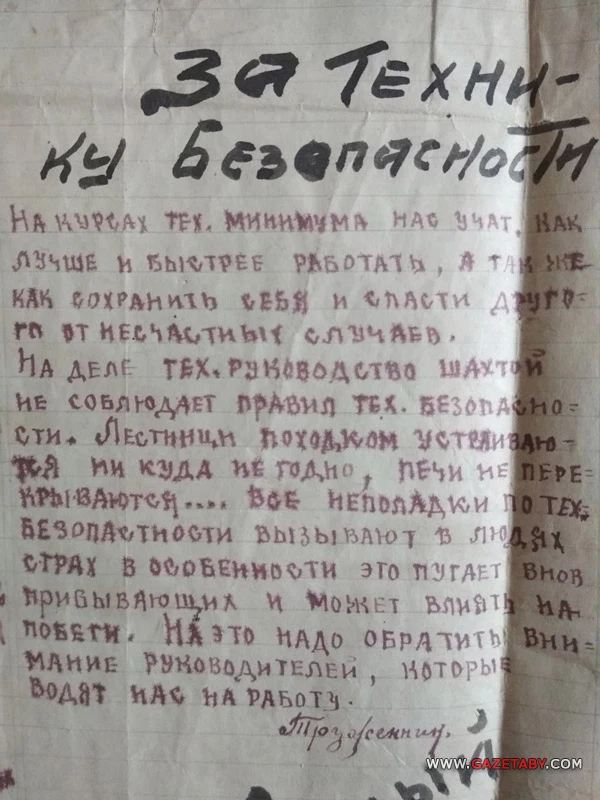 За Техни-
ку Безопасности
На курсах тех. минимума нас учат, как
лучше и быстрее работать, а так же
как сохранить себя и спасти друго=
го от несчастных случаев.
На деле тех. руководство шахтой
не соблюдает правил тех. безопасно=
сти. Лестници походком устраиваю-
тся ни куда не годно, печи не пере-
крываются.... Все неполадки по тех.
безопастности вызывают в людях
страх в особенности это пугает внов
прибывающих и может влиять на
побеги. На это надо обратить вни=
мание руководителей, которые
водят нас на работу.
Труженник.
ный
WWW.GAZETABY.COM